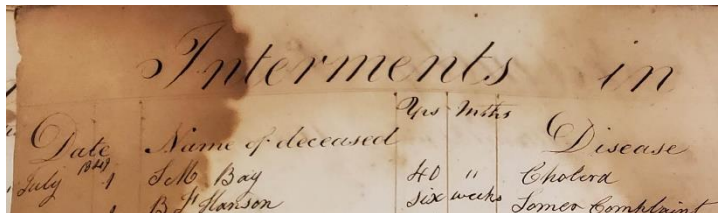 Interments in
Yrs Mths
Date Name of deceased Disease
1849
July 1 S M Bay 40 " Cholera
1 B F Hanson six weeks Somer Complaint